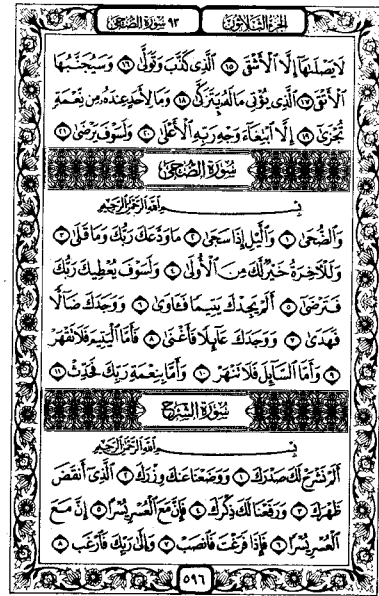 الجزء الثلاثون ٩٣ سورة الضحى
لَا يَصْلَىٰهَآ إِلَّا ٱلْأَشْقَى ١٥ ٱلَّذِى كَذَّبَ وَتَوَلَّىٰ ١٦ وَسَيُجَنَّبُهَا
ٱلْأَتْقَى ١٧ ٱلَّذِى يُؤْتِى مَالَهُۥ يَتَزَكَّىٰ ١٨ وَمَا لِأَحَدٍ عِندَهُۥ مِن نِّعْمَةٍ
تُجْزَىٰٓ ١٩ إِلَّا ٱبْتِغَآءَ وَجْهِ رَبِّهِ ٱلْأَعْلَىٰ ٢٠ وَلَسَوْفَ يَرْضَىٰ ٢١
سورة الضحى
بِسْمِ ٱللَّهِ ٱلرَّحْمَٰنِ ٱلرَّحِيمِ
وَٱلضُّحَىٰ ١ وَٱلَّيْلِ إِذَا سَجَىٰ ٢ مَا وَدَّعَكَ رَبُّكَ وَمَا قَلَىٰ ٣
وَلَلْءَاخِرَةُ خَيْرٌ لَّكَ مِنَ ٱلْأُولَىٰ ٤ وَلَسَوْفَ يُعْطِيكَ رَبُّكَ
فَتَرْضَىٰٓ ٥ أَلَمْ يَجِدْكَ يَتِيمًا فَـَٔاوَىٰ ٦ وَوَجَدَكَ ضَآلًّا
فَهَدَىٰ ٧ وَوَجَدَكَ عَآئِلًا فَأَغْنَىٰ ٨ فَأَمَّا ٱلْيَتِيمَ فَلَا تَقْهَرْ
٩ وَأَمَّا ٱلسَّآئِلَ فَلَا تَنْهَرْ ١٠ وَأَمَّا بِنِعْمَةِ رَبِّكَ فَحَدِّثْ ١١
سورة الشرح
بِسْمِ ٱللَّهِ ٱلرَّحْمَٰنِ ٱلرَّحِيمِ
أَلَمْ نَشْرَحْ لَكَ صَدْرَكَ ١ وَوَضَعْنَا عَنكَ وِزْرَكَ ٢ ٱلَّذِىٓ أَنقَضَ
ظَهْرَكَ ٣ وَرَفَعْنَا لَكَ ذِكْرَكَ ٤ فَإِنَّ مَعَ ٱلْعُسْرِ يُسْرًا ٥ إِنَّ مَعَ
ٱلْعُسْرِ يُسْرًا ٦ فَإِذَا فَرَغْتَ فَٱنصَبْ ٧ وَإِلَىٰ رَبِّكَ فَٱرْغَب ٨
٥٩٦